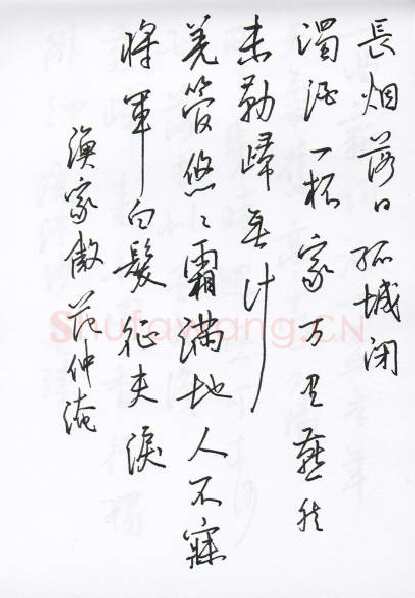 長烟落日孤城闭
濁酒一杯家万里燕然
未勒歸無计
羌管悠〻霜满地人不寐
將軍白髮征夫淚
漁家傲范仲淹
Shufawang.CN